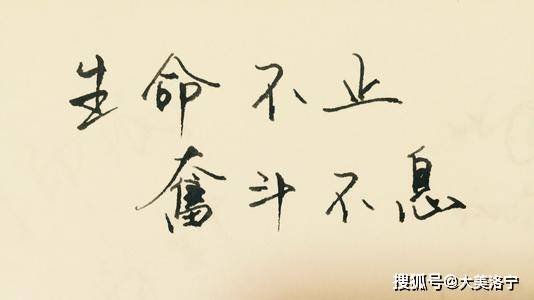 生命不止
奮斗不息
搜狐号@大美洛宁